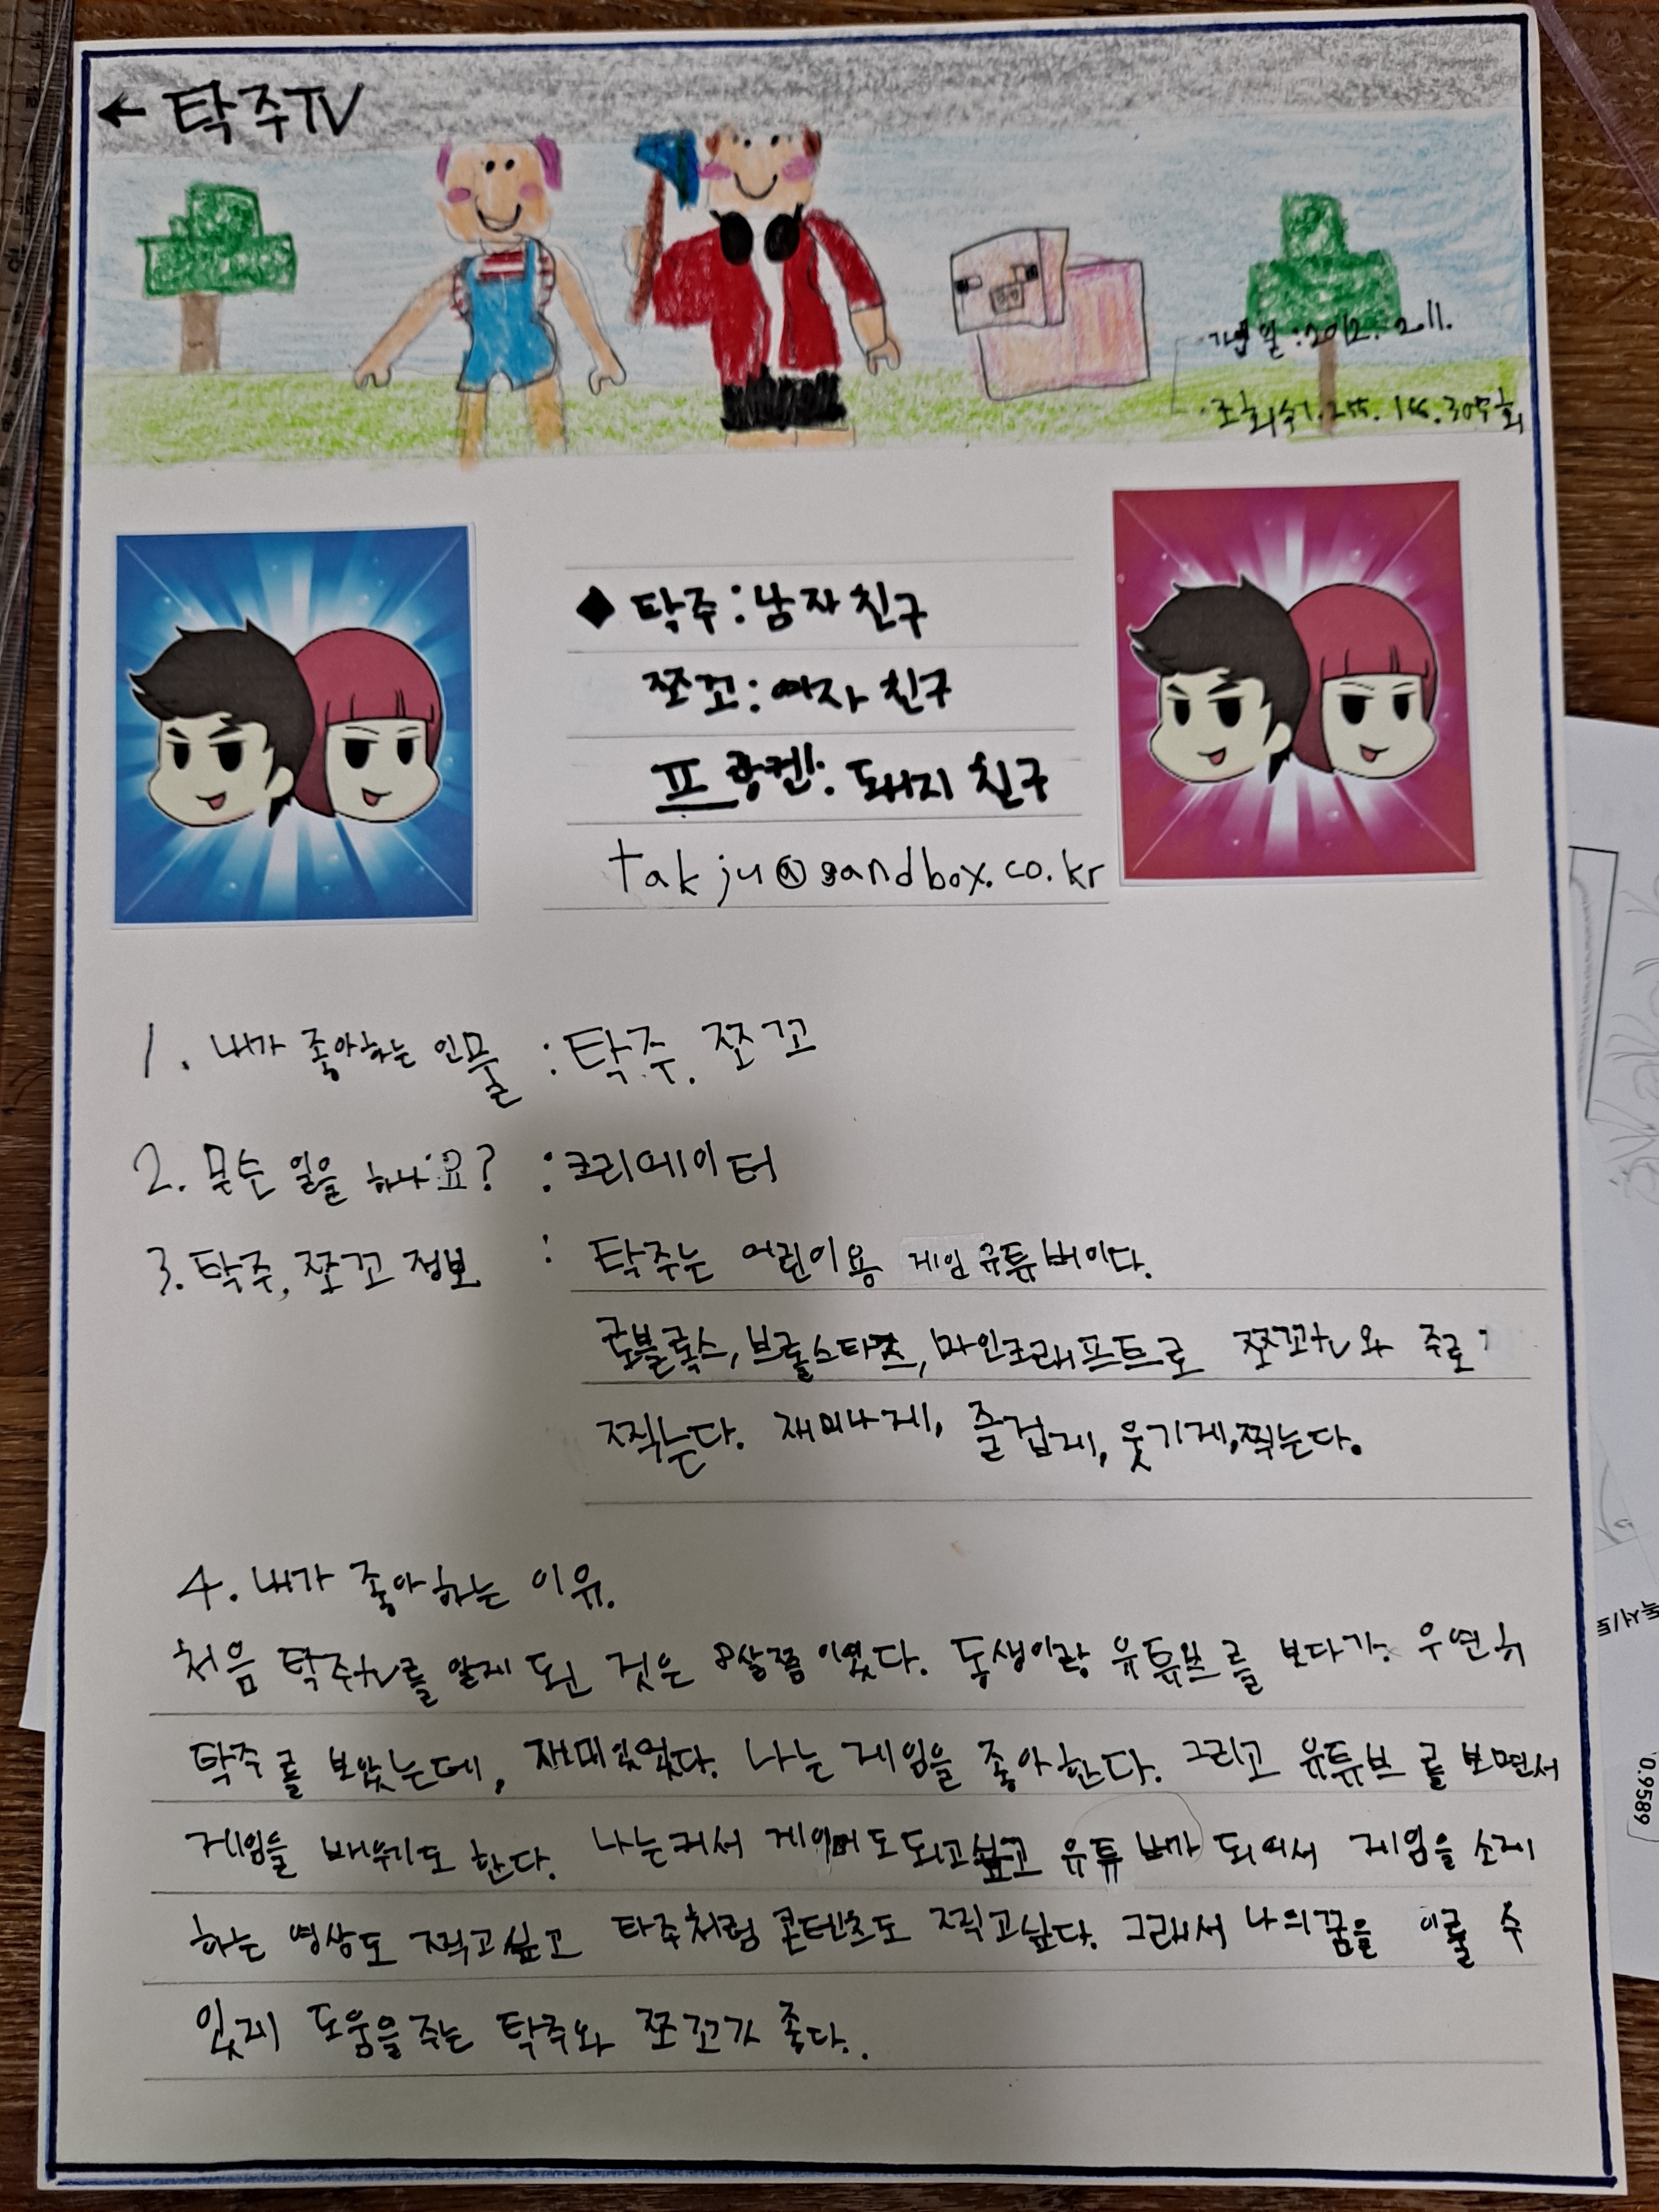 ← 탁주TV
개설일:2012.2.11.
조회수1.255.155.305회
◆ 탁주:남자 친구
쪼꼬:여자 친구
프랑켄:돼지 친구
takju@sandbox.co.kr
1. 내가 좋아하는 인물 :탁주, 쪼꼬
2. 무슨 일을 하나요? :크리에이터
3. 탁주, 쪼꼬 정보 : 탁주는 어린이용 게임 유튜버이다.
로블록스,브롤스타즈,마인크래프트로 쪼꼬tv와 주로
찍는다. 재미나게, 즐겁게, 웃기게,찍는다.
4. 내가 좋아하는 이유.
처음 탁주tv를 알게 된 것은 8살쯤이였다. 동생이랑 유튜브를 보다가 우연히
탁주를 보았는데, 재미있었다. 나는 게임을 좋아한다. 그리고 유튜브를 보면서
게임을 배우기도 한다. 나는커서 게이머도되고싶고 유튜버가 되어서 게임을 소개
하는 영상도 찍고싶고 탁주처럼 콘텐츠도 찍고싶다. 그래서 나의꿈을 이룰 수
있게 도움을주는 탁주와 쪼꼬가 좋다..
0.9589